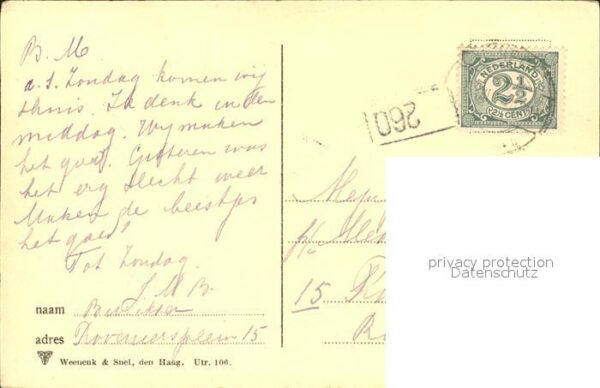 B. M
a.s. Zondag komen wij
thuis. Ik denk in den
middag. Wij maken
het goed. Gisteren was
het erg slecht weer
Maken de beestjes
het goed?
Tot Zondag
J M B.
naam
adres 15
Weenenk & Snel, den Haag. Utr. 106.
NEDERLAND
2½
2½ CENT
260
Mej
p/a
15
privacy protection
Datenschutz